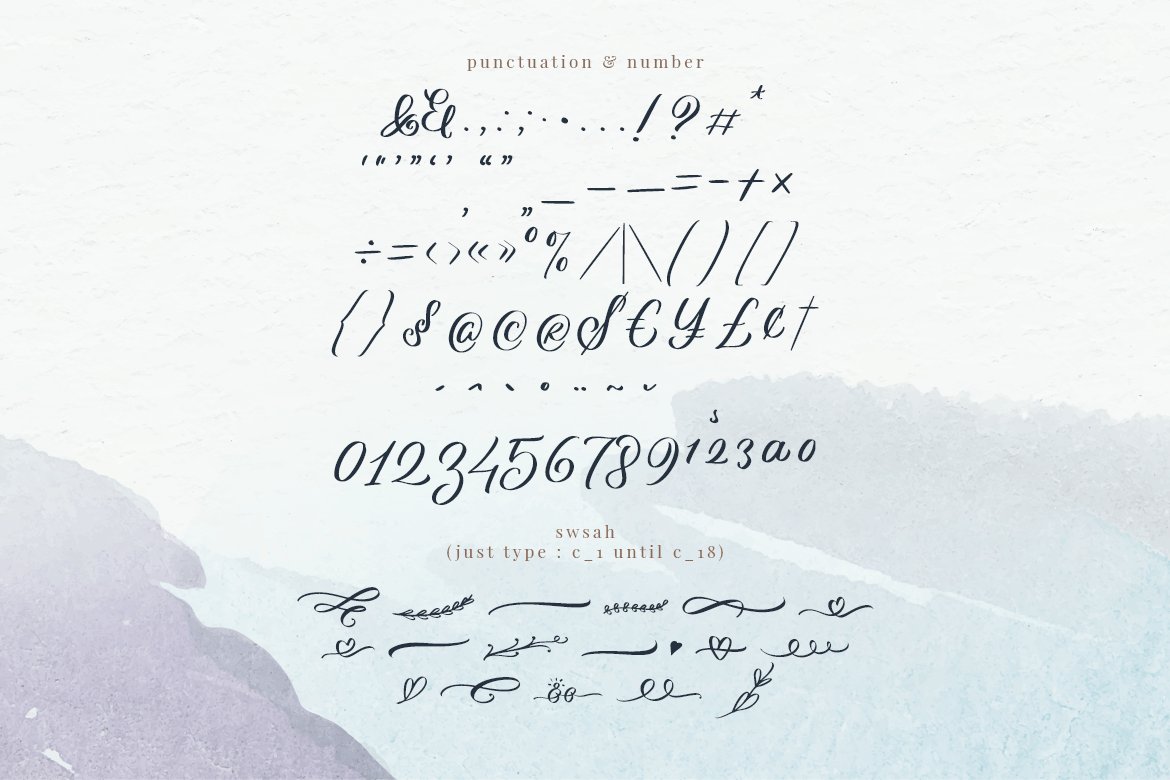 punctuation & number
& & . , : ; · • . . . ! ? # *
' " ’ ” ‘ ’ “ ”
‚ „ _ – — = - + ×
÷ = ‹ › « » ° % / | \ ( ) [ ]
{ } § @ © ® $ € ¥ £ ¢ †
´ ˆ ` ˚ ¨ ˜ ˘
¸
0123456789¹²³ªº
swsah
(just type : c_1 until c_18)